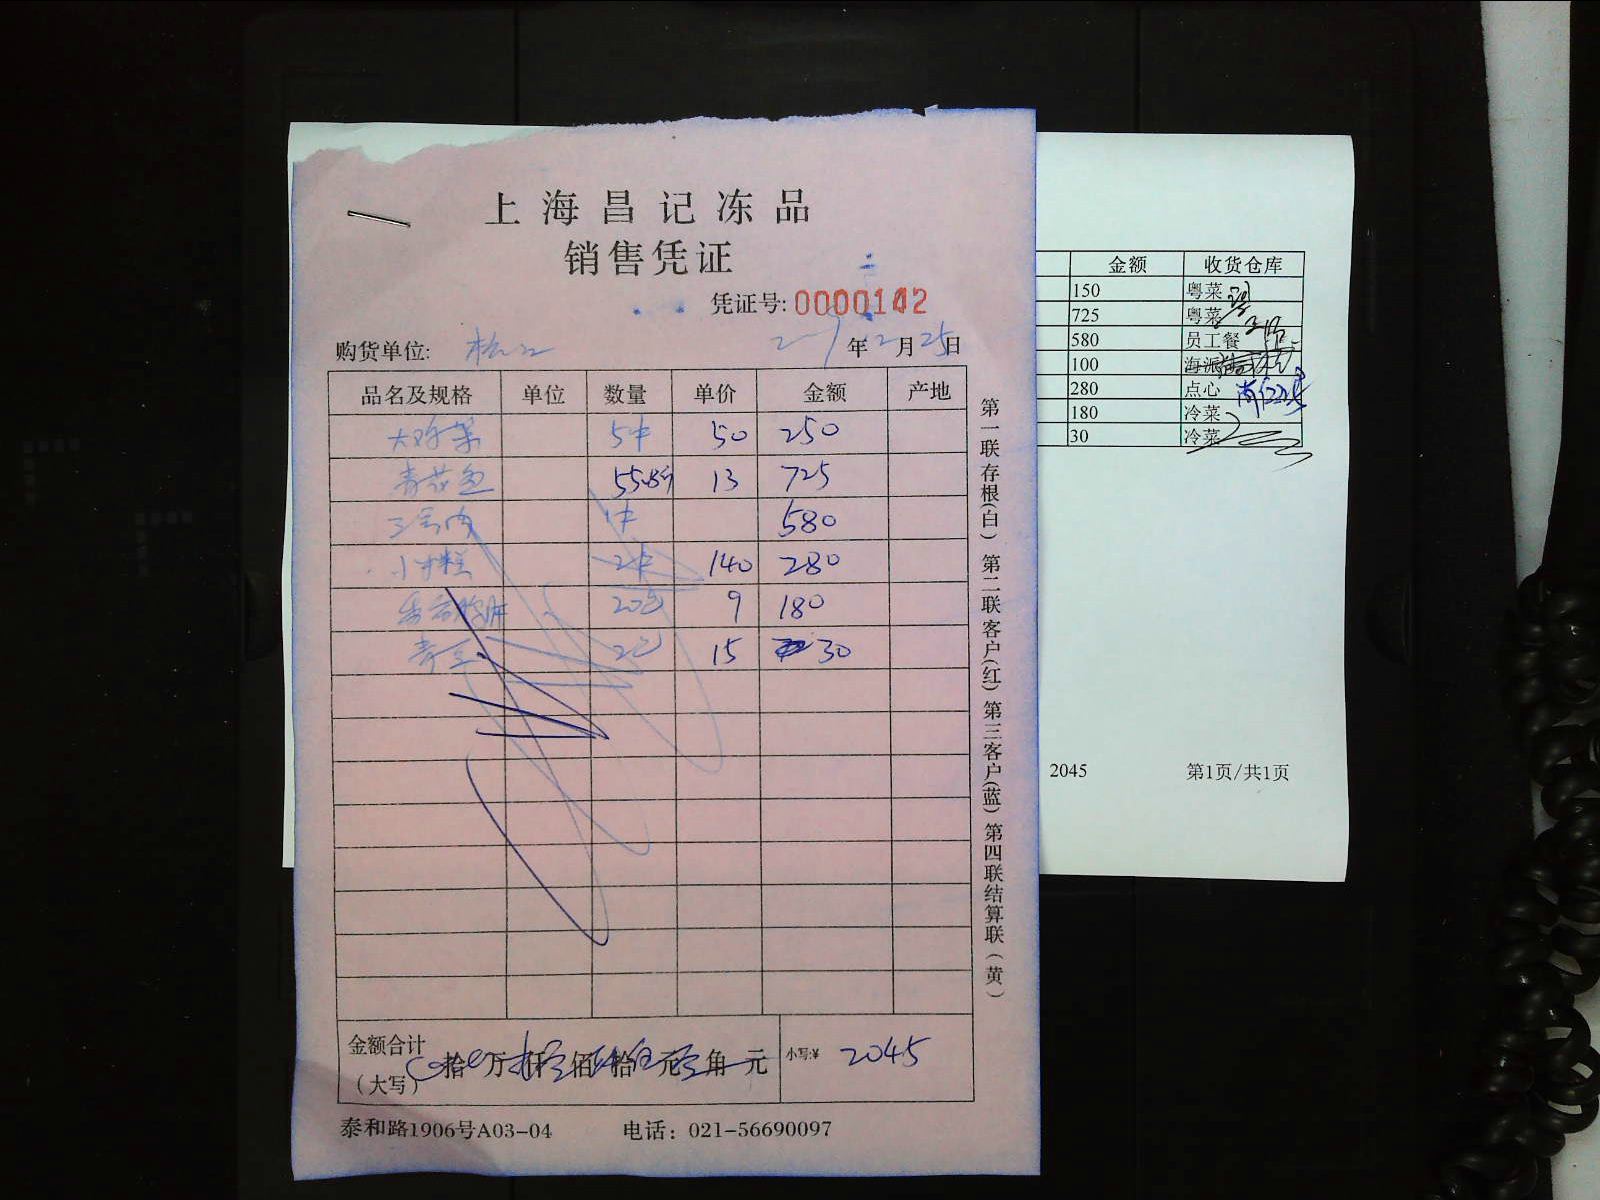 上海昌记冻品
销售凭证
凭证号: 0000142
购货单位: 年 2 月 25 日
品名及规格 单位 数量 单价 金额 产地
50 250
青花鱼 55.8斤 13 725
580
140 280
9 180
青豆 15 30
金额合计
(大写) 拾 万 仟 佰 拾 元 角 元 小写:¥ 2045
泰和路1906号A03-04 电话: 021-56690097
第一联存根(白) 第二联客户(红) 第三客户(蓝) 第四联结算联(黄)
金额 收货仓库
150 粤菜
725 粤菜
580 员工餐
100 海派
280 点心
180 冷菜
30 冷菜
2045 第1页/共1页